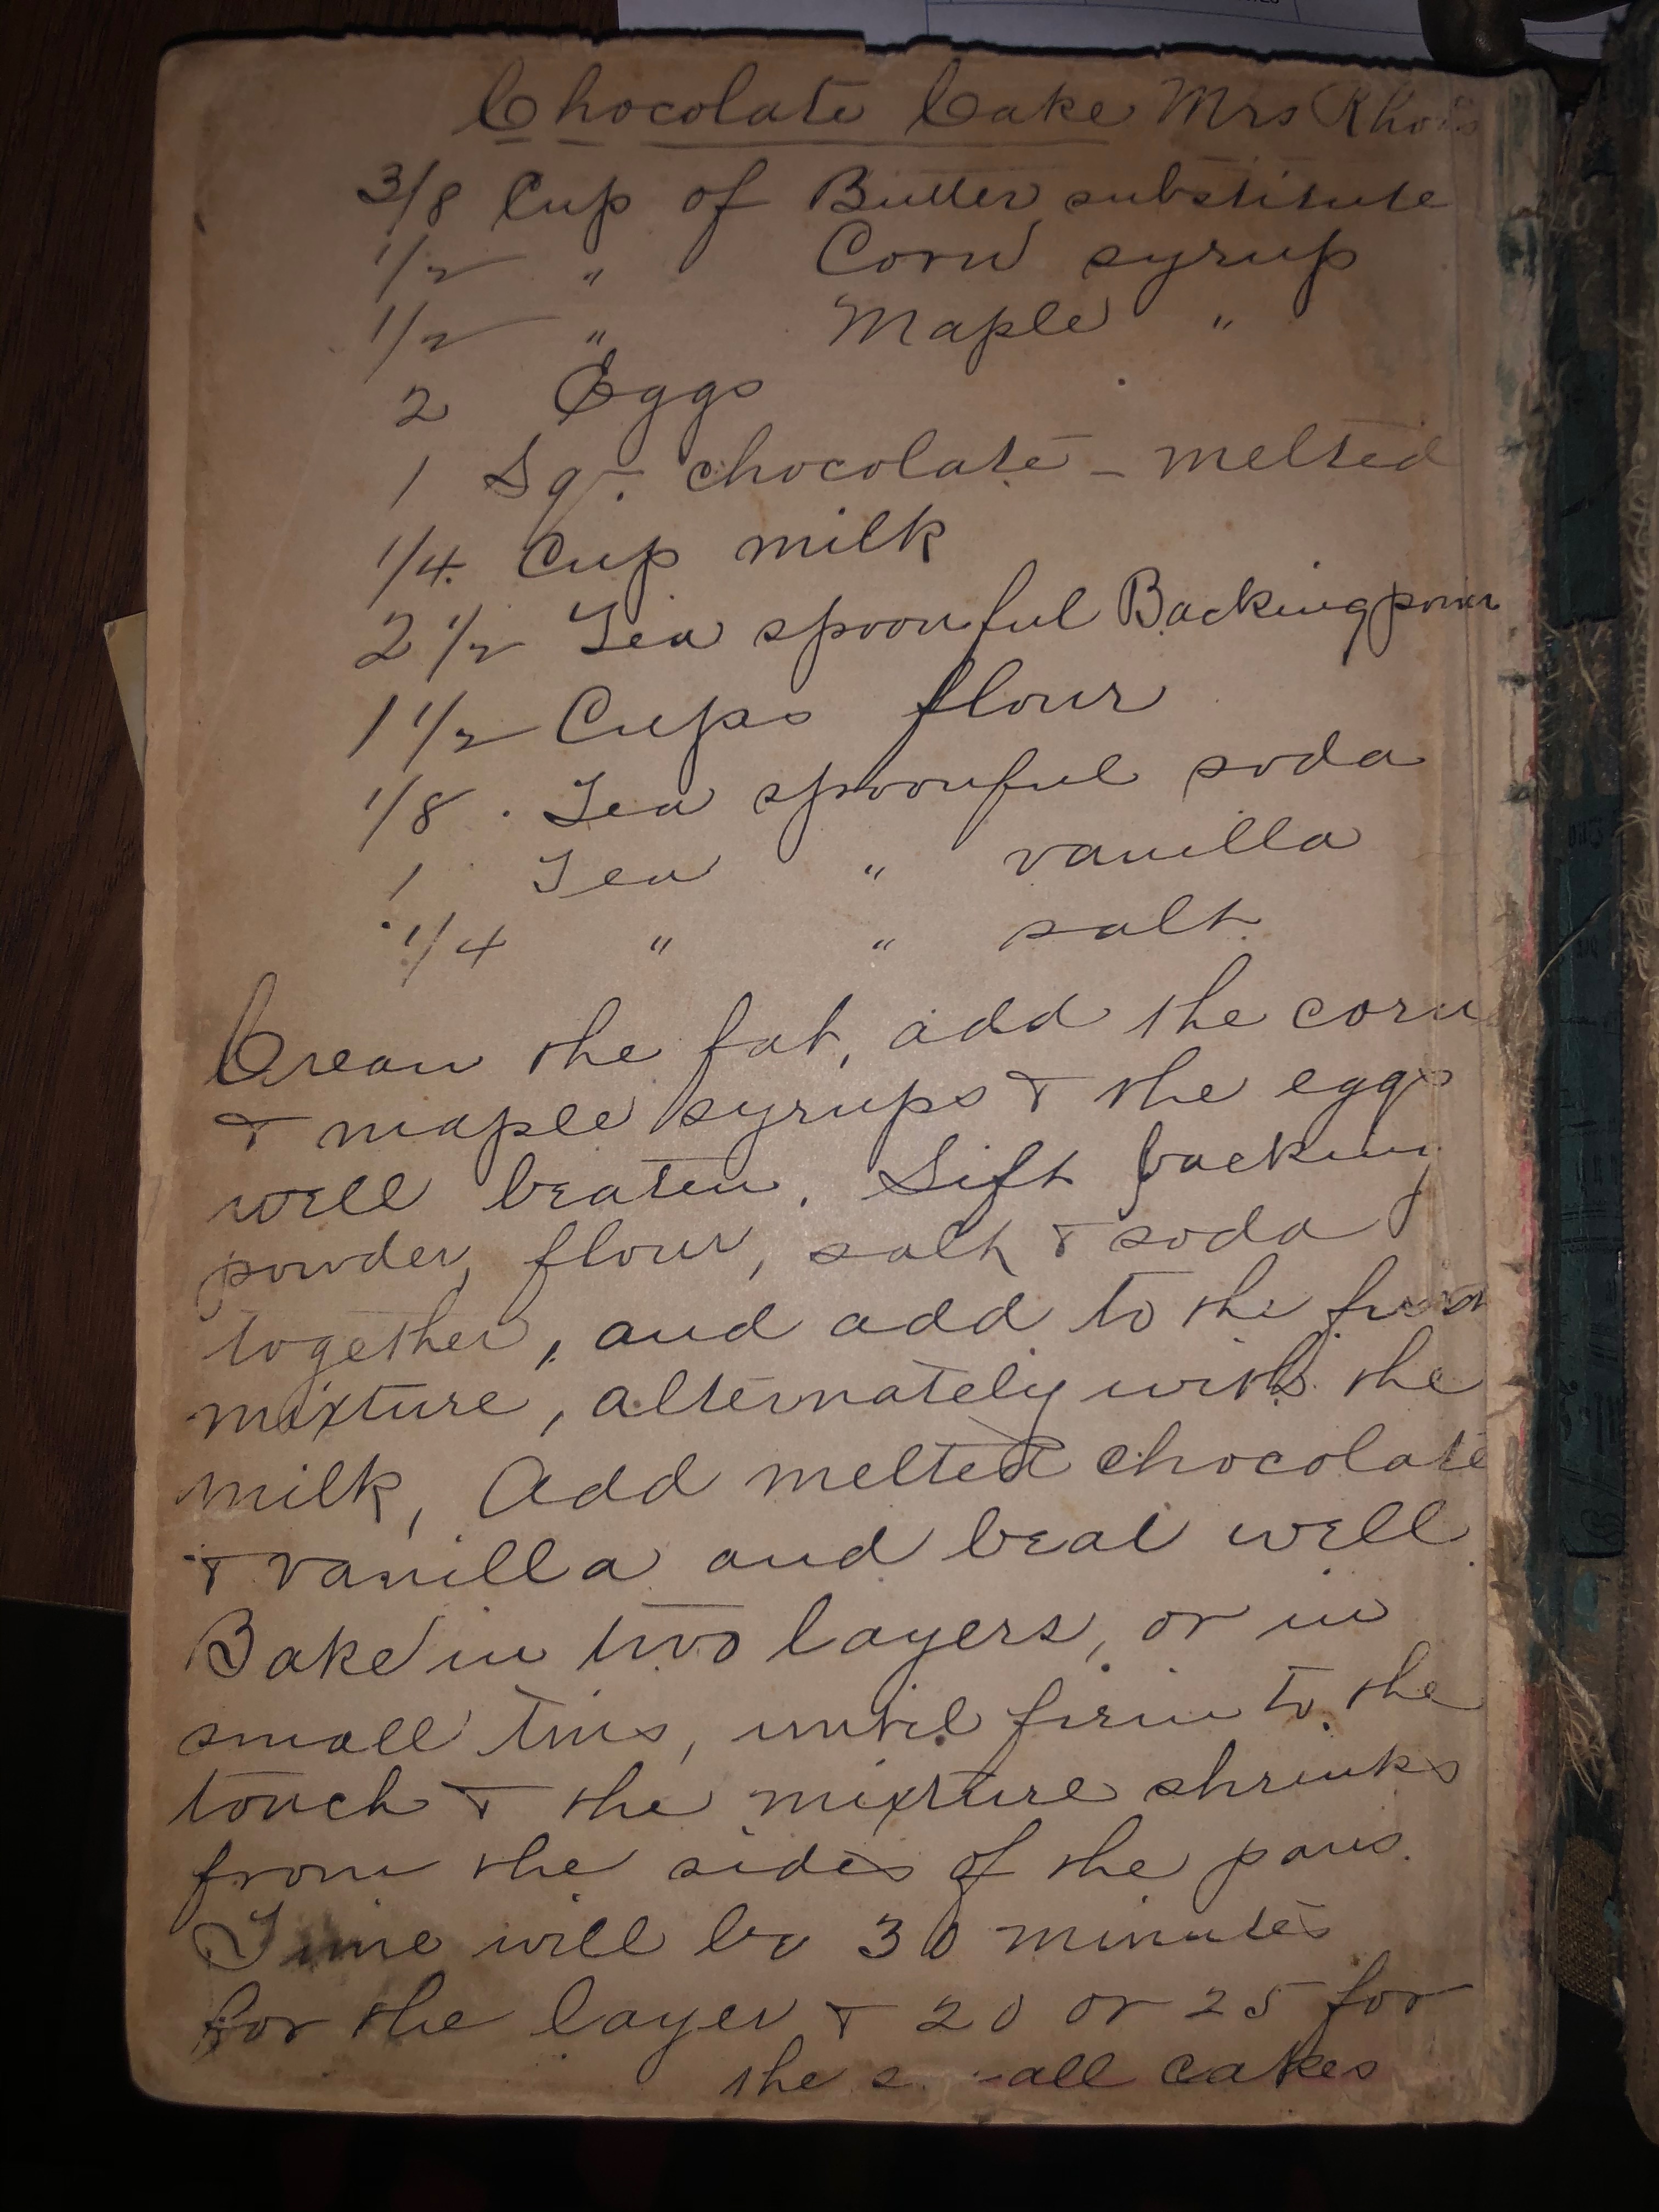 Chocolate Cake Mrs
3/8 Cup of Butter substitute
1/2 " Corn syrup
1/2 " Maple "
2 Eggs
1 Sq. chocolate - melted
1/4 Cup milk
2 1/2 Tea spoonful Backing
1 1/2 Cups flour
1/8 Tea spoonful soda
1 Tea " vanilla
1/4 " " salt
Cream the fat, add the corn
& maple syrups & the eggs
well beaten. Sift backing
powder, flour, salt & soda
together, and add to the
mixture, alternately with the
milk, Add melted chocolate
& vanilla and beat well.
Bake in two layers, or in
small tins, until firm to the
touch & the mixture shrinks
from the sides of the pans.
Time will be 30 minutes
for the layer & 20 or 25 for
the small cakes